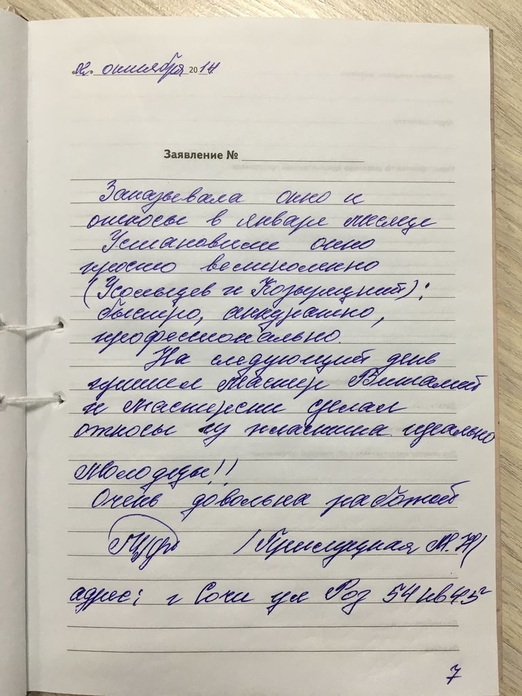 октября 2014
Заявление №
Заказывала окно и
откосы в январе месяце
Установили окно
просто великолепно
(Усольцев и Козырицкий):
быстро, аккуратно,
профессионально.
На следующий день
пришел мастер Виталий
и мастерски сделал
откосы из пластика идеально
Молодцы!!
Очень довольна работой
/Прилуцкая М.Н/
адрес: г Сочи ул Роз 54 кв 45
7